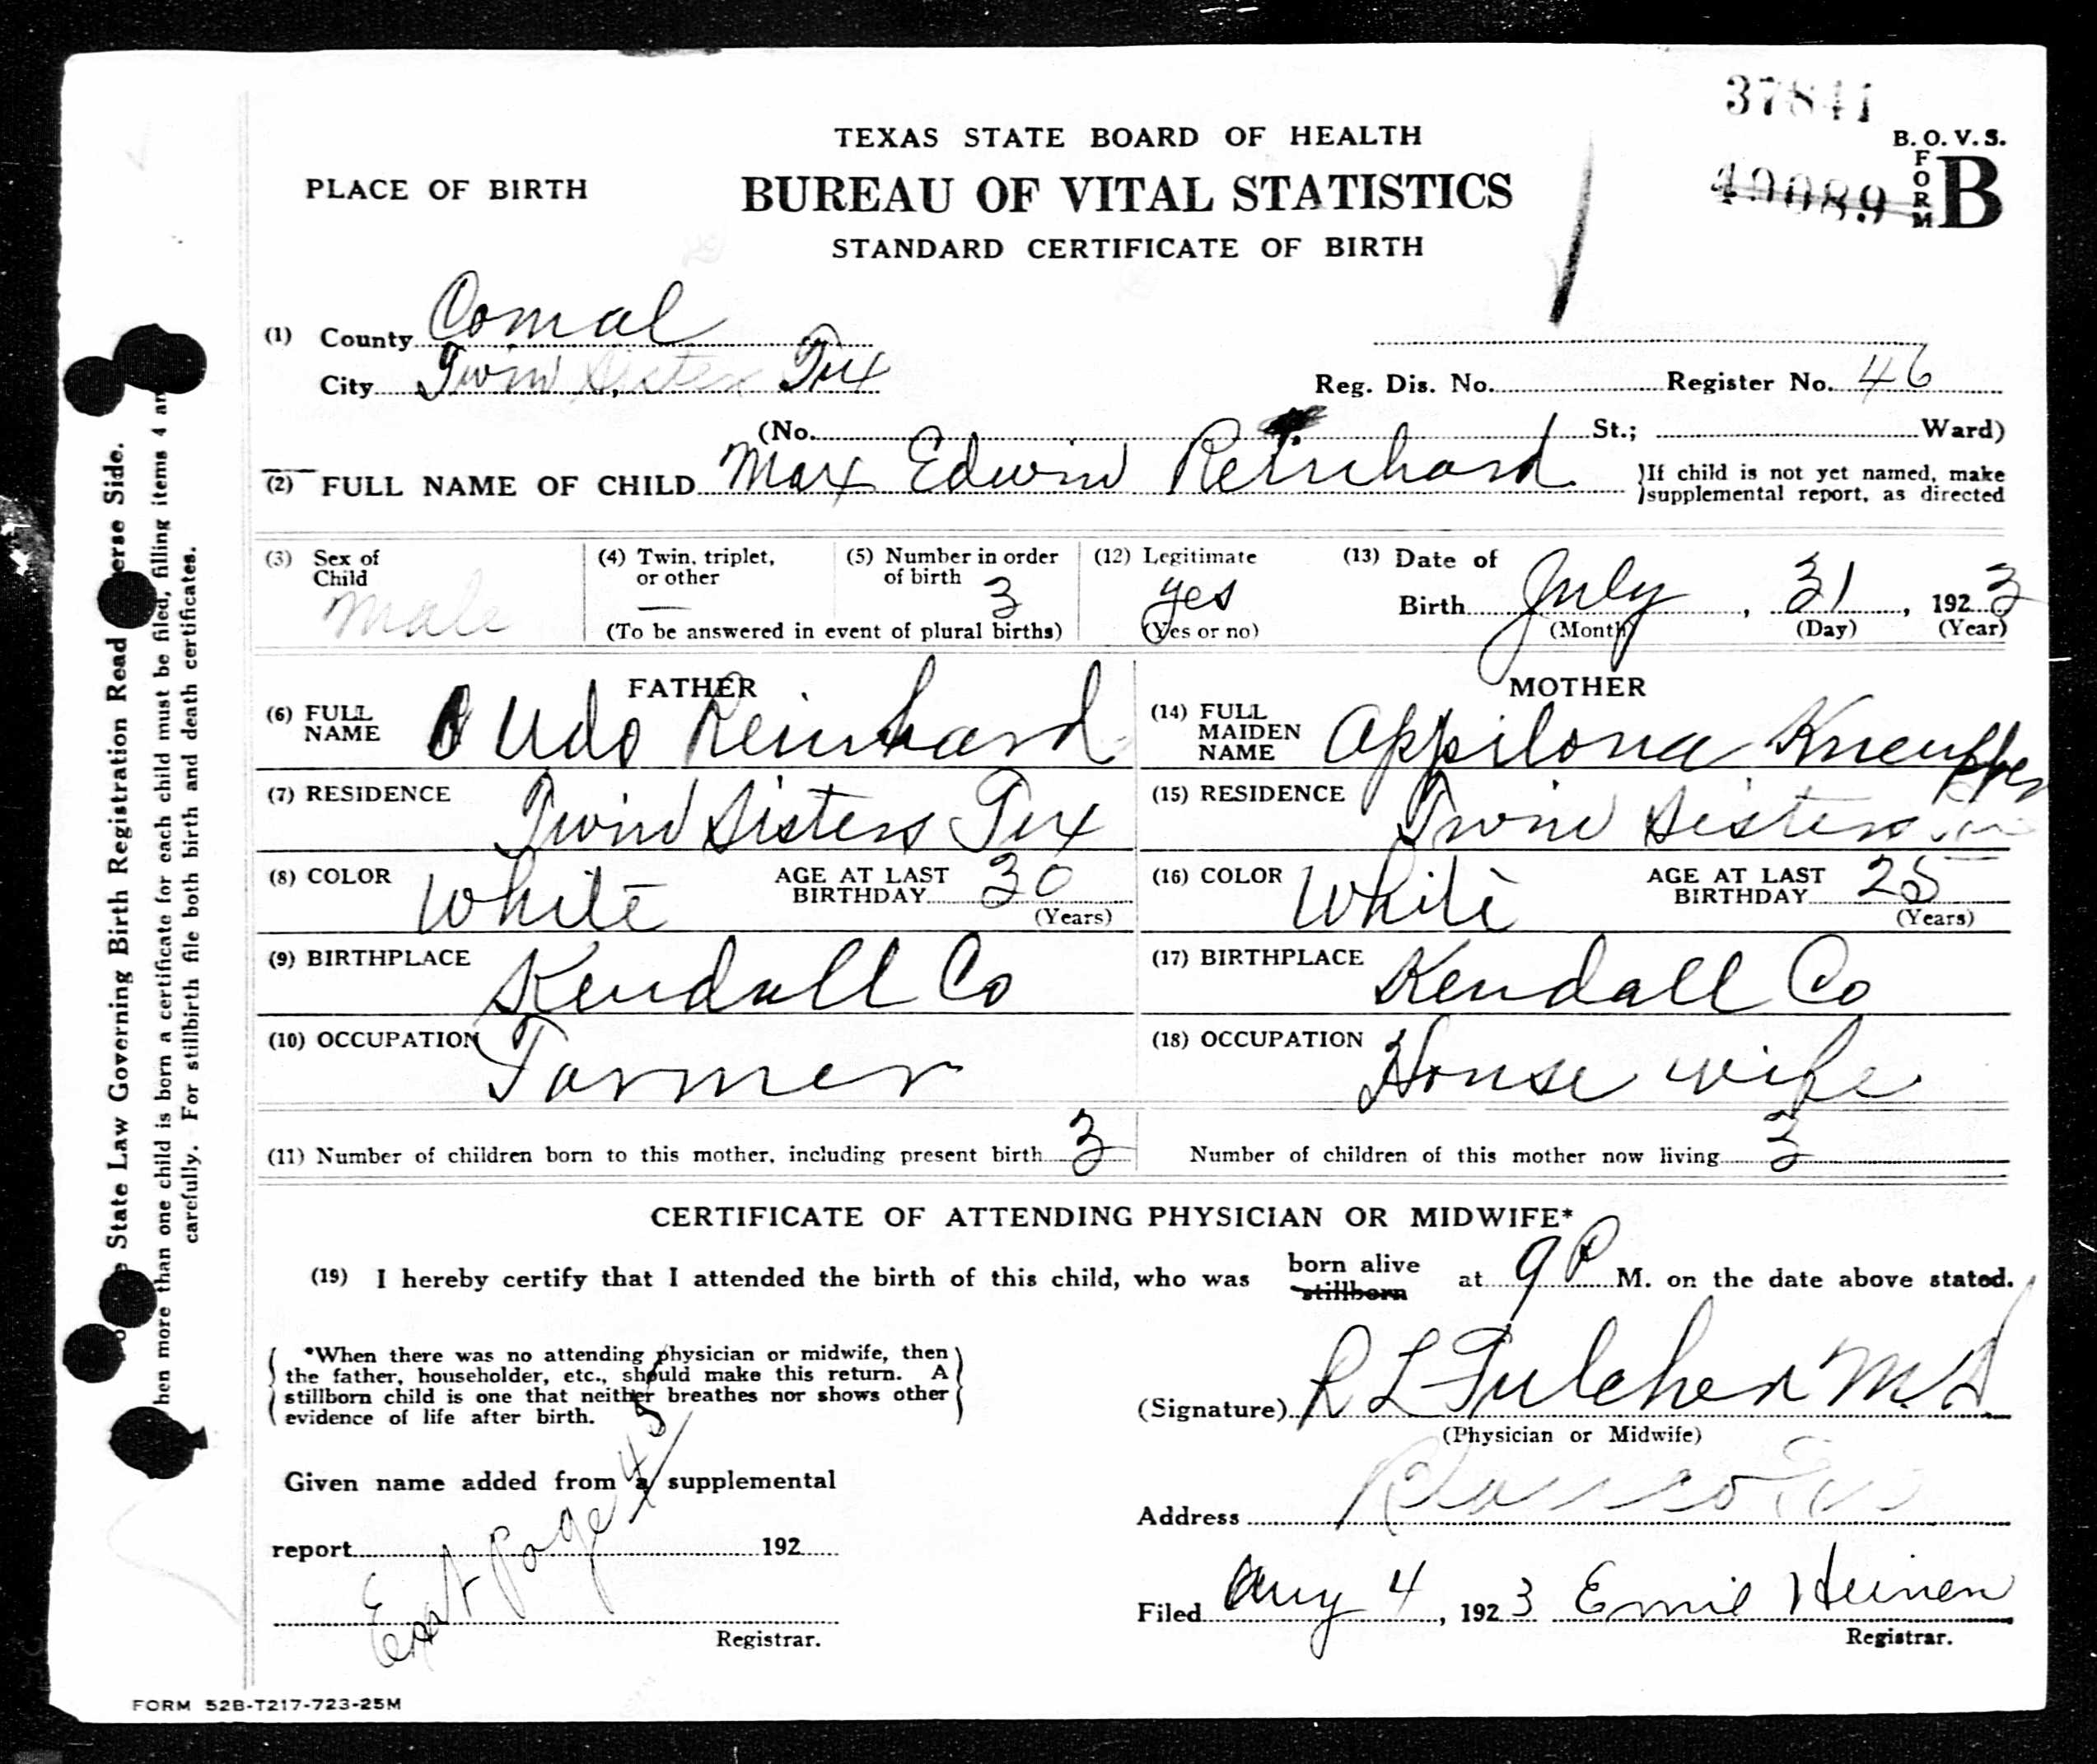 37841
TEXAS STATE BOARD OF HEALTH
B. O. V. S.
PLACE OF BIRTH
BUREAU OF VITAL STATISTICS
49089 FORM B
STANDARD CERTIFICATE OF BIRTH
(1) County Comal
City Twin Sister Tex
Reg. Dis. No. Register No. 46
(No. St.; Ward)
(2) FULL NAME OF CHILD Max Edwin Reinhard
If child is not yet named, make
supplemental report, as directed
(3) Sex of Child Male
(4) Twin, triplet, or other —
(5) Number in order of birth 3
(To be answered in event of plural births)
(12) Legitimate yes
(Yes or no)
(13) Date of
Birth July, 31, 1923
(Month) (Day) (Year)
FATHER
(6) FULL NAME Udo Reinhard
(7) RESIDENCE Twin Sisters Tex
(8) COLOR White AGE AT LAST BIRTHDAY 30
(Years)
(9) BIRTHPLACE Kendall Co
(10) OCCUPATION Farmer
MOTHER
(14) FULL MAIDEN NAME Appilona Kneupper
(15) RESIDENCE Twin Sisters
(16) COLOR White AGE AT LAST BIRTHDAY 25
(Years)
(17) BIRTHPLACE Kendall Co
(18) OCCUPATION House wife
(11) Number of children born to this mother, including present birth 3
Number of children of this mother now living 3
CERTIFICATE OF ATTENDING PHYSICIAN OR MIDWIFE*
(19) I hereby certify that I attended the birth of this child, who was born alive stillborn at 9 P M. on the date above stated.
*When there was no attending physician or midwife, then
the father, householder, etc., should make this return. A
stillborn child is one that neither breathes nor shows other
evidence of life after birth.
(Signature) R L Fulcher M.D
(Physician or Midwife)
Given name added from a supplemental
report 192
Registrar.
Address Blanco Tex
Filed Aug 4, 1923 Emil Heinen
Registrar.
FORM 52B-T217-723-25M
State Law Governing Birth Registration Read erse Side.
hen more than one child is born a certificate for each child must be filed, filling items 4 an
carefully. For stillbirth file both birth and death certificates.